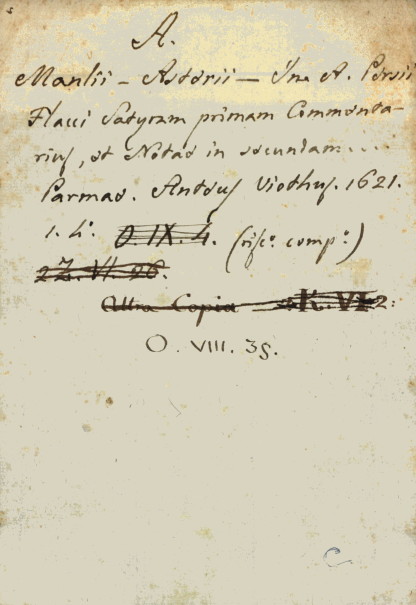 A.
Manlii - Astorii - In A. Persii
Flacci Satyram primam Commenta-
rius, et Notae in secundam....
Parmae. Antdus Viothus. 1621.
1. 4°. O. IX. 4. (risc° comp°)
2Z. VI. 26.
Altra Copia K. VI 2:
O. VIII. 35.
C